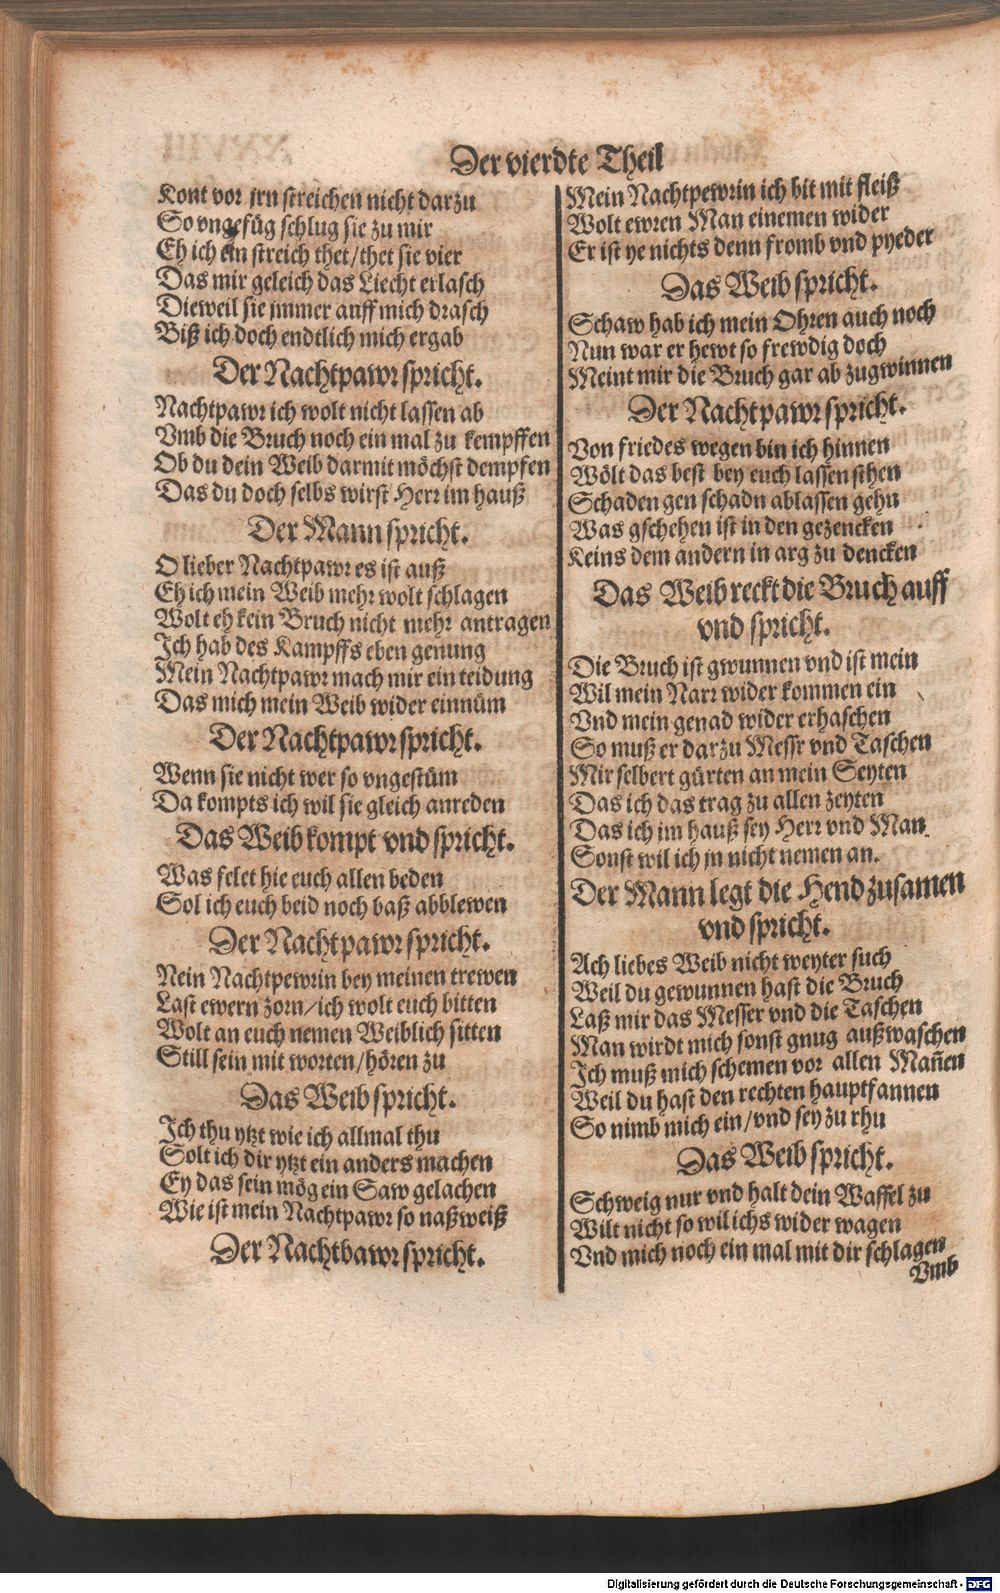 Der vierdte Theil
Kont vor jrn streichen nicht darzu
So vngefüg schlug sie zu mir
Eh ich ein streich thet/thet sie vier
Das mir geleich das Liecht erlasch
Dieweil sie jmmer auff mich drasch
Biß ich doch endtlich mich ergab
Der Nachtpawr spricht.
Nachtpawr ich wolt nicht lassen ab
Vmb die Bruch noch ein mal zu kempffen
Ob du dein Weib darmit möchst dempfen
Das du doch selbs wirst Herr im hauß
Der Mann spricht.
O lieber Nachtpawr es ist auß
Eh ich mein Weib mehr wolt schlagen
Wolt eh kein Bruch nicht mehr antragen
Ich hab des Kampffs eben genung
Mein Nachtpawr mach mir ein teidung
Das mich mein Weib wider einnüm
Der Nachtpawr spricht.
Wenn sie nicht wer so vngestüm
Da kompts ich wil sie gleich anreden
Das Weib kompt vnd spricht.
Was felet hie euch allen beden
Sol ich euch beid noch baß abblewen
Der Nachtpawr spricht.
Nein Nachtpewrin bey meinen trewen
Last ewern zorn/ich wolt euch bitten
Wolt an euch nemen Weiblich sitten
Still sein mit worten/hören zu
Das Weib spricht.
Ich thu ytzt wie ich allmal thu
Solt ich dir ytzt ein anders machen
Ey das sein mög ein Saw gelachen
Wie ist mein Nachtpawr so naßweiß
Der Nachtbawr spricht.
Mein Nachtpewrin ich bit mit fleiß
Wolt ewren Man einemen wider
Er ist ye nichts denn fromb vnd pyeder
Das Weib spricht.
Schaw hab ich mein Ohren auch noch
Nun war er hewt so frewdig doch
Meint mir die Bruch gar ab zugwinnen
Der Nachtpawr spricht.
Von friedes wegen bin ich hinnen
Wölt das best bey euch lassen sthen
Schaden gen schadn ablassen gehn
Was gschehen ist in den gezencken
Keins dem andern in arg zu dencken
Das Weib reckt die Bruch auff
vnd spricht.
Die Bruch ist gwunnen vnd ist mein
Wil mein Narr wider kommen ein
Vnd mein genad wider erhaschen
So muß er darzu Messr vnd Taschen
Mir selbert gürten an mein Seyten
Das ich das trag zu allen zeyten
Das ich jm hauß sey Herr vnd Man.
Sonst wil ich jn nicht nemen an.
Der Mann legt die Hend zusamen
vnd spricht.
Ach liebes Weib nicht weyter such
Weil du gewunnen hast die Bruch
Laß mir das Messer vnd die Taschen
Man wirdt mich sonst gnug außwaschen
Ich muß mich schemen vor allen Mañen
Weil du hast den rechten hauptfannen
So nimb mich ein/vnd sey zu rhu
Das Weib spricht.
Schweig nur vnd halt dein Waffel zu
Wilt nicht so wil ichs wider wagen
Vnd mich noch ein mal mit dir schlagen
Vmb
Digitalisierung gefördert durch die Deutsche Forschungsgemeinschaft - DFG